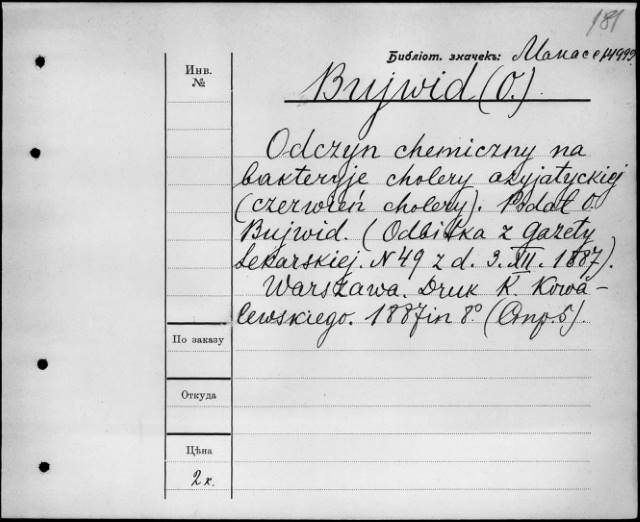 181
Библіот. значекъ: Манасе 14993
Инв.
№
Bujwid (O.)
Odczyn chemiczny na
bakteryje cholery azyjatyckiej
(czerwień cholery). Podał O.
Bujwid. (Odbitka z Gazety
Lekarskiej. N 49 z d. 3. XII. 1887).
Warszawa. Druk K. Kowa-
lewskiego. 1887 in 8° (Стр. 5).
По заказу
Откуда
Цѣна
2 к.